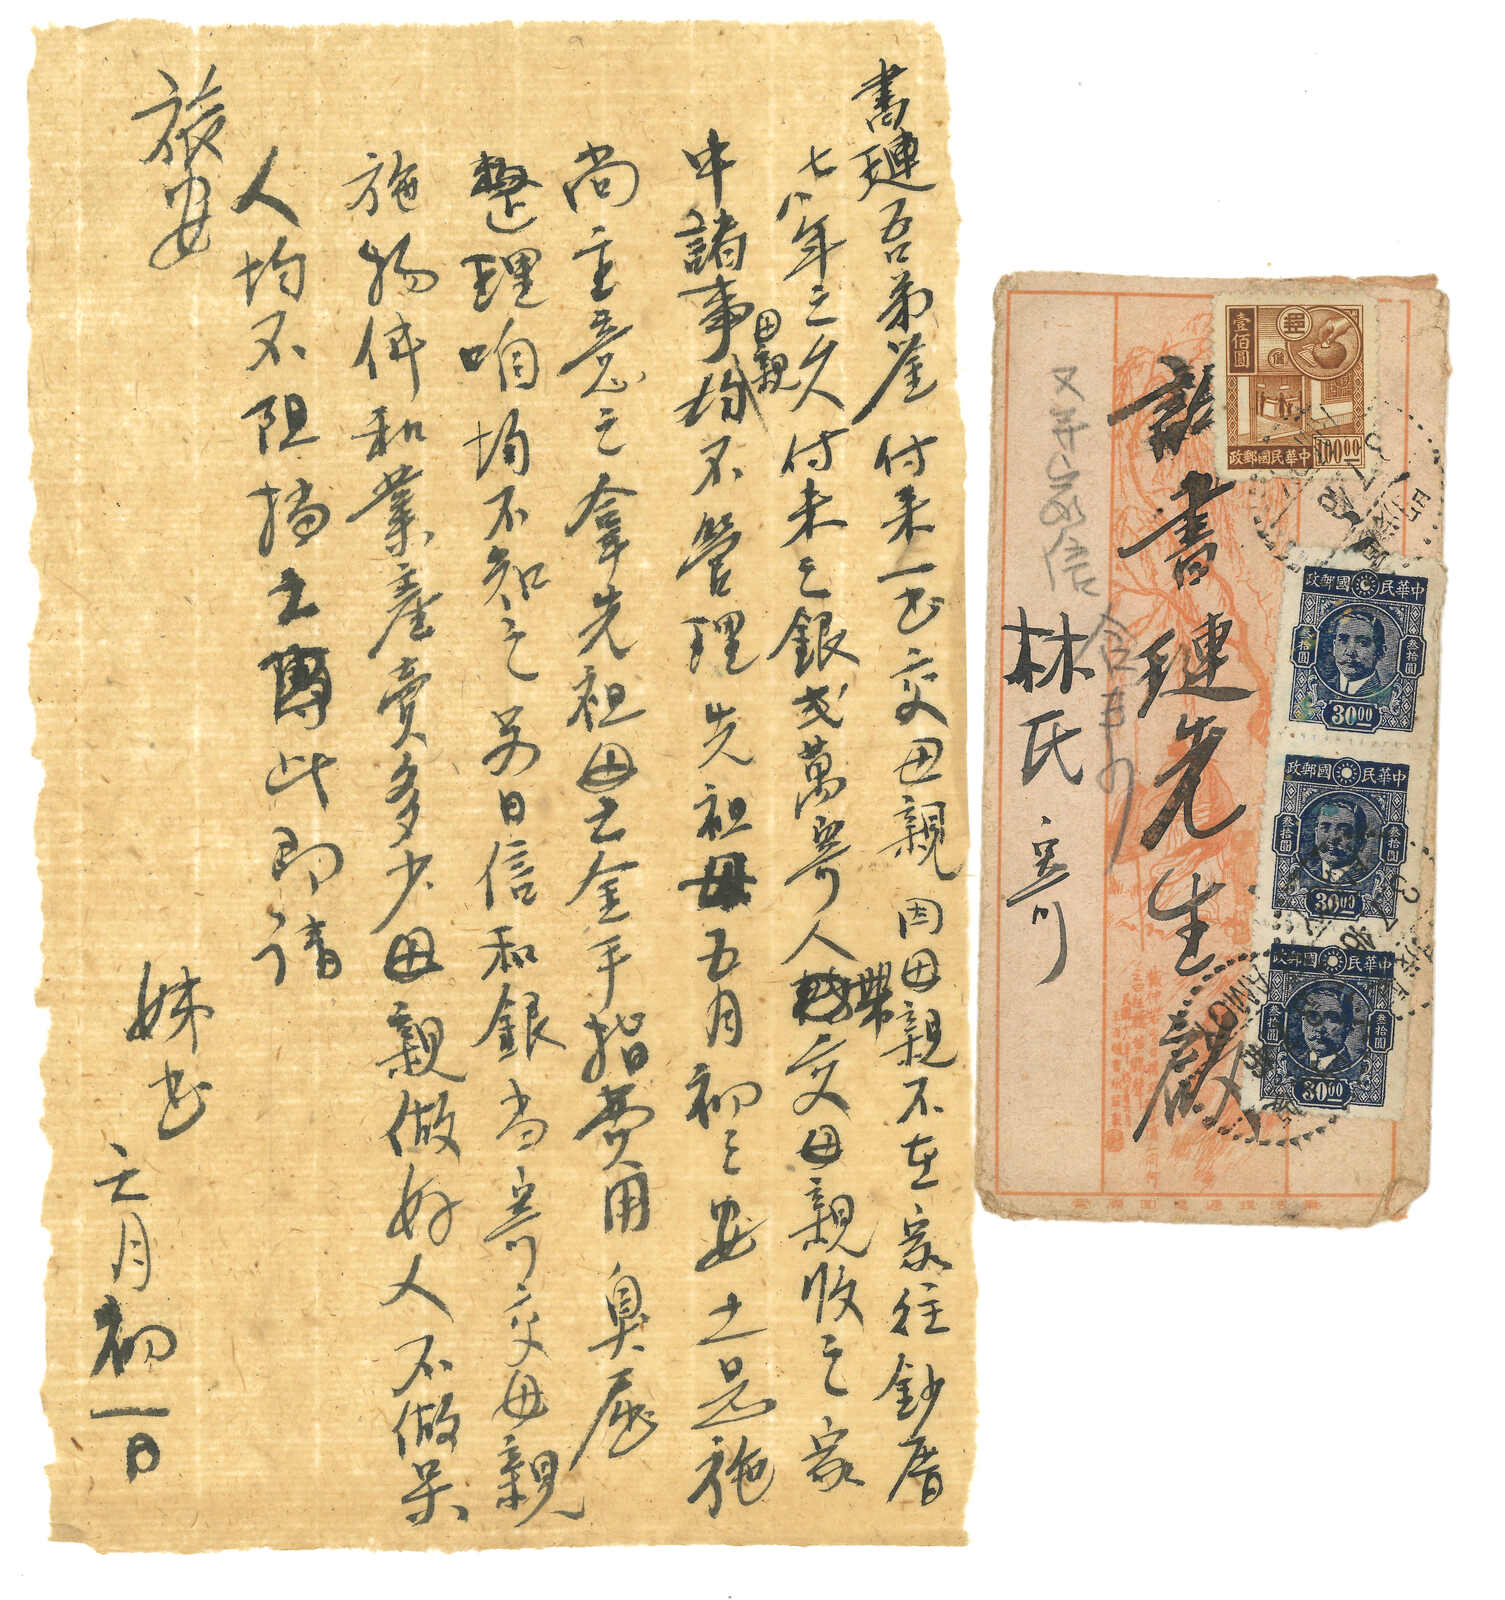 書璉吾弟鑒付來一書交母親因母親不在家往鈔厝
七八年之久付來之銀弍萬寄人交母親收之家
中諸事均母親不管理先祖母五月初三安土是施
尚主意之拿先祖母之金手指費用臭屁
整理咱均不知之另日信和銀當寄交母親
施物件和業產賣多少母親做好人不做呆
人均不阻擋之專此即請
旅安
姊書
六月初一日
書璉先生啟
林氏寄
壹佰圓
100.00
中華民國郵政
中華民國郵政
叁拾圓
叁拾圓
30.00
中華民國郵政
叁拾圓
叁拾圓
30.00
中華民國郵政
叁拾圓
叁拾圓
30.00